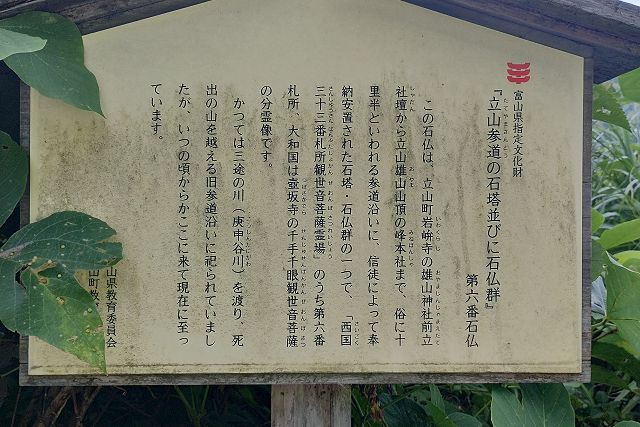 富山県指定文化財
『立山参道の石塔並びに石仏群』
たてやまさんどう
第六番石仏
この石仏は、立山町岩峅寺の雄山神社前立
いわくらじ
おやまじんじゃまえたて
社壇から立山雄山山頂の峰本社まで、俗に十
しゃだん
おやま
みねほんしゃ
里半といわれる参道沿いに、信徒によって奉
納安置された石塔・石仏群の一つで、「西国
さいごく
三十三番札所観世音菩薩霊場」のうち第六番
札所、大和国は壺坂寺の千手千眼観世音菩薩
の分霊像です。
かつては三途の川（庚申谷川）を渡り、死
出の山を越える旧参道沿いに祀られていまし
たが、いつの頃からかここに来て現在に至っ
ています。
山県教育委員会
山町教